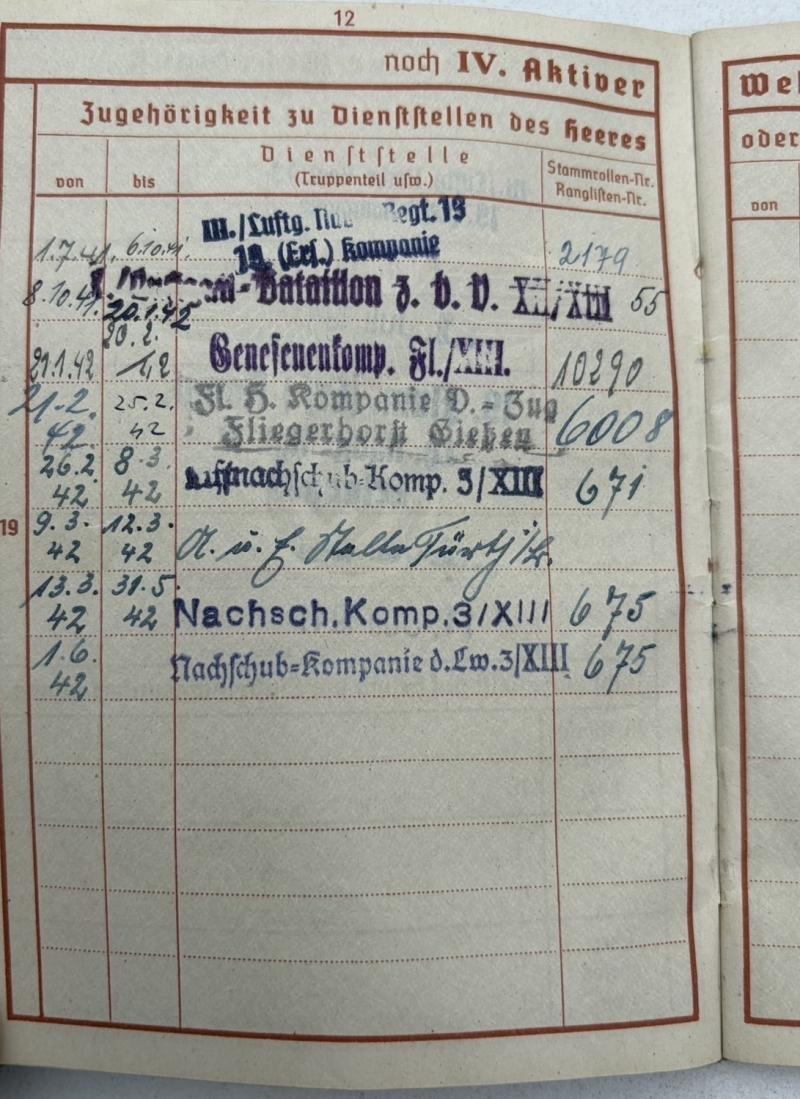 12
noch IV. Aktiver
Zugehörigkeit zu Dienststellen des Heeres
von
bis
Dienststelle
(Truppenteil usw.)
Stammrollen-Nr.
Ranglisten-Nr.
1.7.41. 6.10.41. III./Luftg. Regt. 13
(Ers.) Kompanie 2179
8.10.41. 20.1.42 Bataillon z. b. V. XII/XIII 55
20.2.
21.1.42 42 Genesenenkomp. Fl./XIII. 10290
21.2. 25.2. Fl. H. Kompanie V.-Zug
42 42 Fliegerhorst Gießen 6008
26.2 8.3. Luftnachschub-Komp. 3/XIII 671
42 42
19
9.3. 12.3. A. u. E. Stelle Fürth
42 42
13.3. 31.5
42 42 Nachsch.Komp.3/XIII 675
1.6.
42 Nachschub-Kompanie d.Lw.3/XIII 675
Weh
oder
von